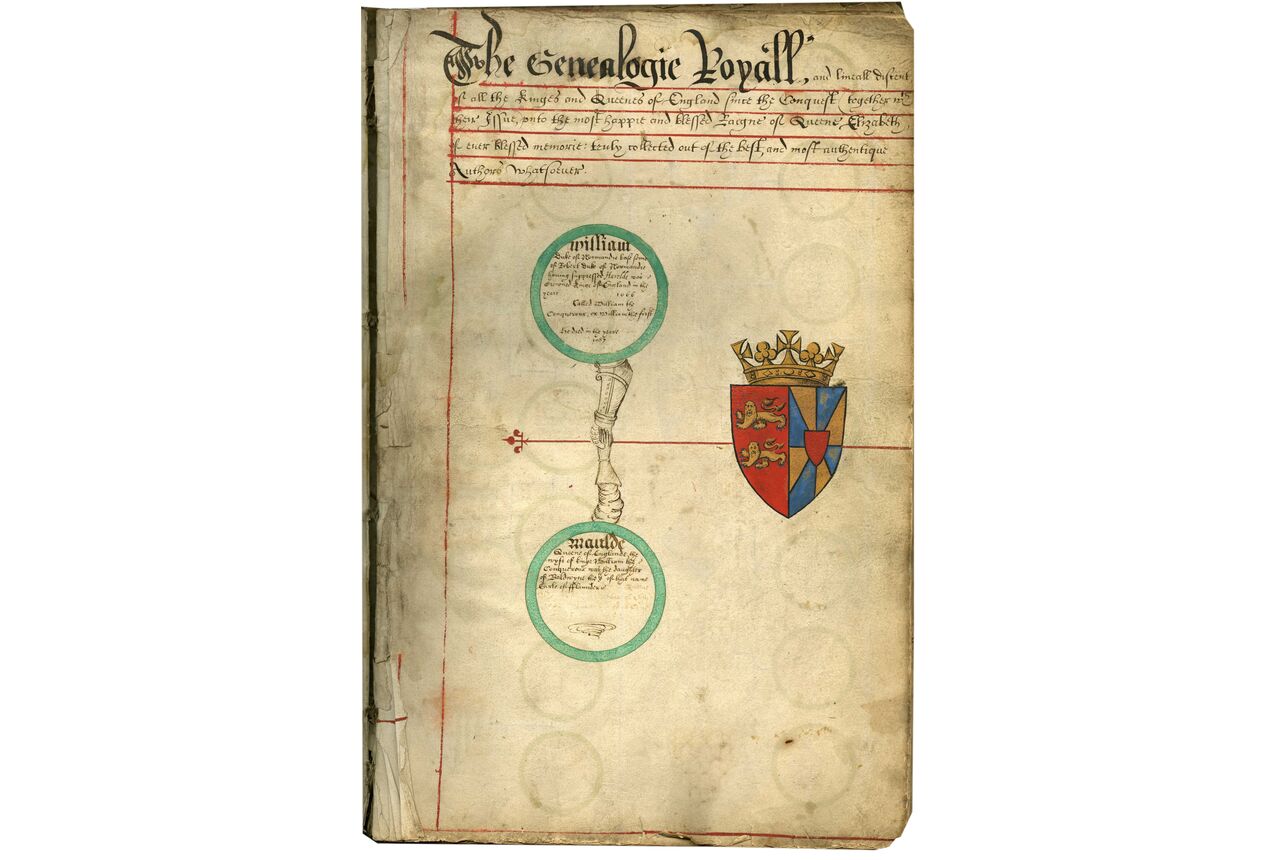 The Genealogie Royall, and lineall discent
of all the Kinges and Queenes of England since the Conquest, together wth
their Issue, vnto the most happie and blessed Raigne of Queene Elizabeth,
of euer blessed memorie: truly collected out of the best, and most authentique
Authors whatsoeuer.
William
Duke of Normandie base sonne
of Robert Duke of Normandie
hauing suppressed Herolde was
Crowned Kinge of England in the
yeare 1066
Called William the
Conquerour, or William the first
He died in the yeare
1087
Maulde
Queene of Englande the
wyfe of Kinge William the
Conquerour was the daughter
of Baldwyne the 5 of that name
Earle of fflaunders